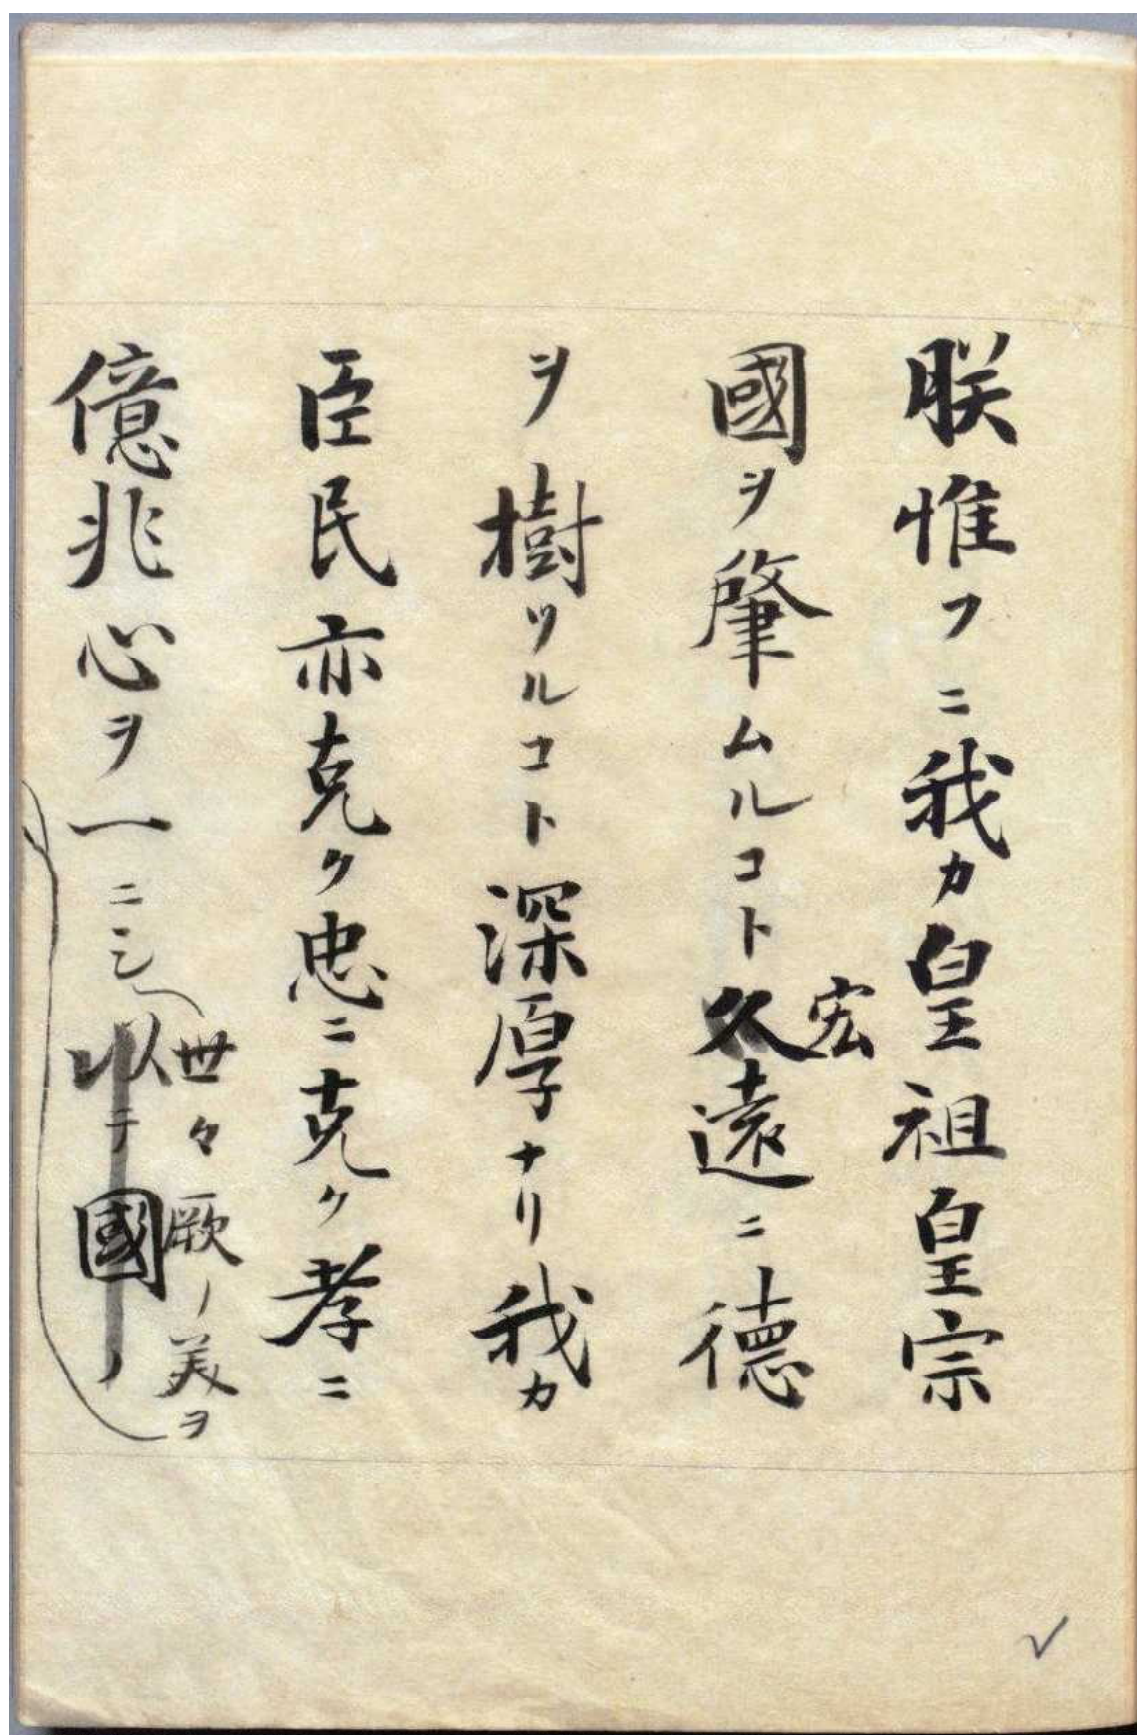 朕惟フニ我カ皇祖皇宗
國ヲ肇ムルコト久遠ニ德
宏
ヲ樹ツルコト深厚ナリ我カ
臣民亦克ク忠ニ克ク孝ニ
億兆心ヲ一ニシ以テ國ノ
世々厥ノ美ヲ